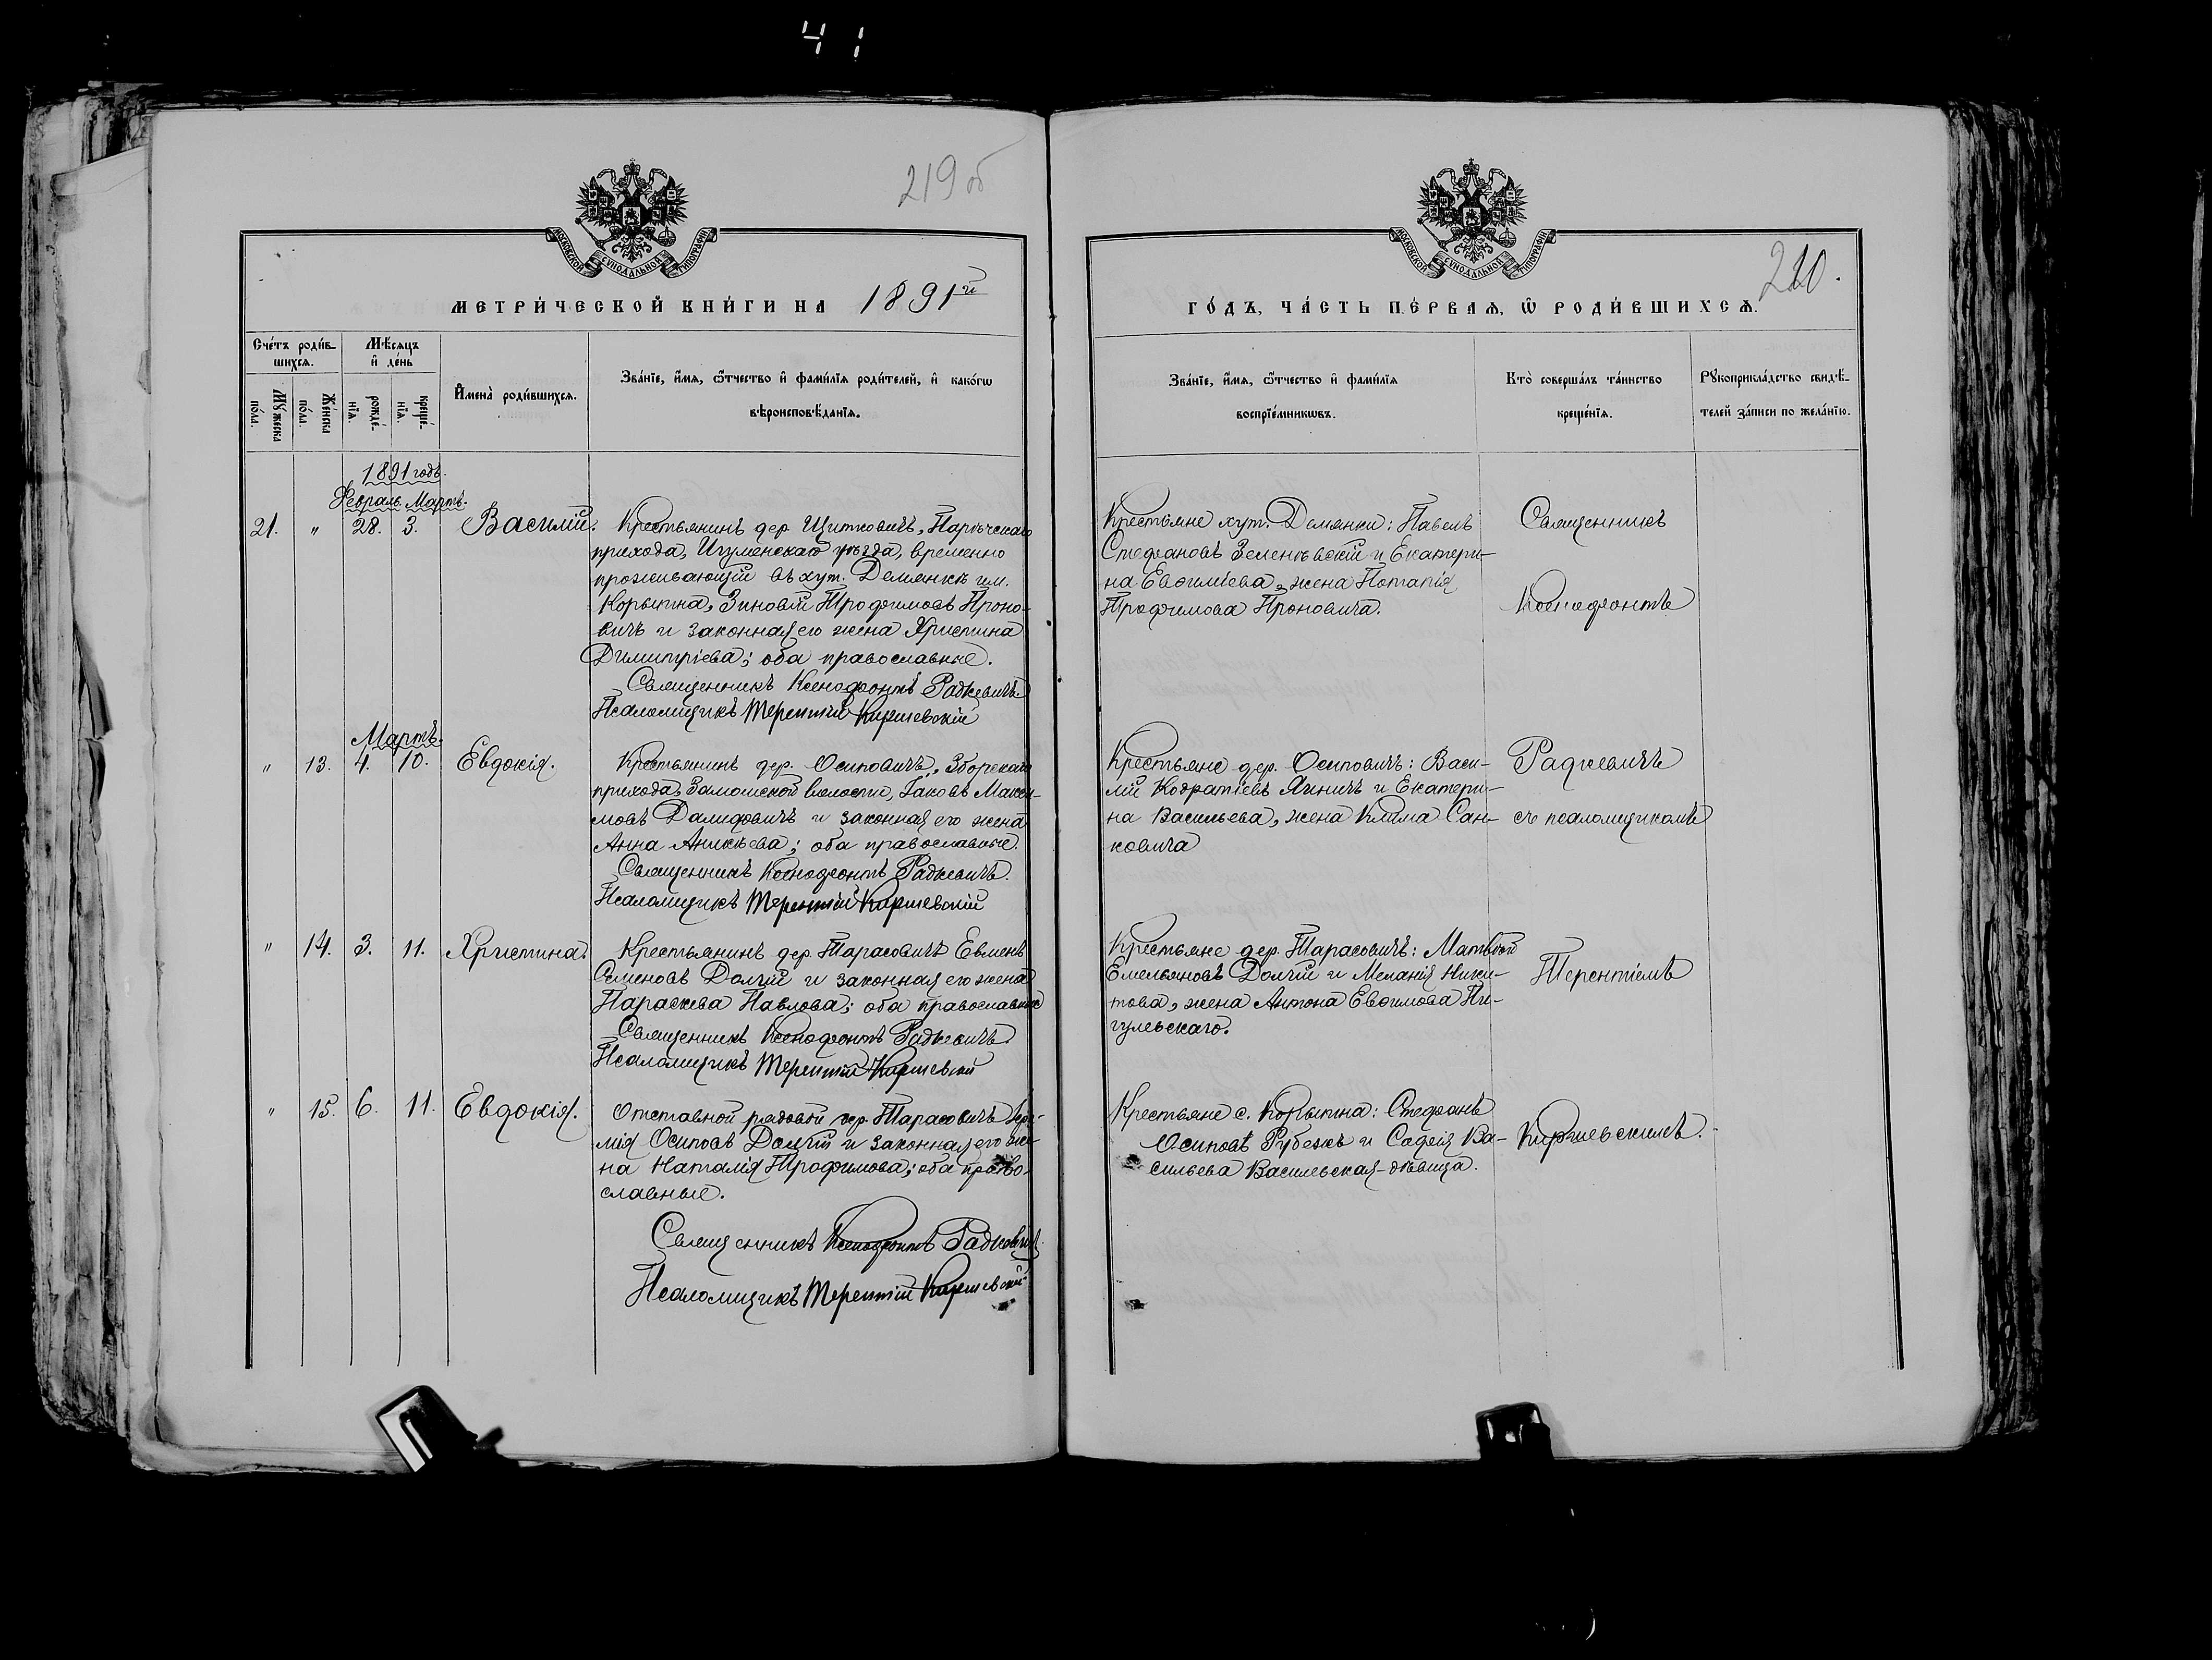 41
219 об
МОСКОВСКОЙ СУНОДАЛЬНОЙ ТИПОГРАФІИ
МЕТРИ́ЧЕСКОЙ КНИ́ГИ НА 1891й
Сче́тъ роди́в-
шихся.
Мѣ́сяцъ
и҆ де́нь
Му́жеска
по́ла.
Же́нска
по́ла.
рожде́-
нїя.
креще́-
нїя.
И҆мена̀ роди́вшихся.
Зва́нїе, и҆́мя, ѻ҆́тчество и҆ фами́лїя роди́телей, и҆ како́гѡ
вѣроисповѣ́данїя.
1891 годъ.
Февраль. Мартъ.
21. " 28. 3. Василій.
Крестьянинъ дер. Цитковичъ, Парѣчскаго
прихода, Игуменскаго уѣзда, временно
проживающій въ хут. Демянкѣ им.
Корытна, Зиновій Трофимовъ Проно-
вичъ и законная его жена Христина
Димитріева; оба православные.
Священникъ Ксенофонтъ Радкевичъ
Псаломщикъ Терентій Киршевскій
Мартъ.
" 13. 4. 10. Евдокія.
Крестьянинъ дер. Осиповичъ, Зборскаго
прихода, Замошской волости, Іаковъ Макси-
мовъ Демидовичъ и законная его жена
Анна Аникѣева; оба православные.
Священникъ Ксенофонтъ Радкевичъ.
Псаломщикъ Терентій Киршевскій
" 14. 3. 11. Христина.
Крестьянинъ дер. Тарасовичъ Евменъ
Семеновъ Долгій и законная его жена
Параскева Павлова; оба православные
Священникъ Ксенофонтъ Радкевичъ
Псаломщикъ Терентій Киршевскій
" 15. 6. 11. Евдокія.
Отставной рядовой дер. Тарасовичъ
мія Осиповъ Долгій и законная его же-
на Наталія Трофимова; оба право-
славные.
Священникъ Ксенофонтъ Радкевичъ.
Псаломщикъ Терентій Киршевскій
МОСКОВСКОЙ СУНОДАЛЬНОЙ ТИПОГРАФІИ
220.
ГО́ДЪ, ЧА́СТЬ ПЕ́РВАЯ, Ѡ҆ РОДИ́ВШИХСЯ.
Зва́нїе, и҆́мя, ѻ҆́тчество и҆ фами́лїя
воспрїе́мникѡвъ.
Кто̀ соверша́лъ та́инство
креще́нїя.
Рꙋкоприкла́дство свидѣ́-
телей за́писи по жела́нїю.
Крестьяне хут. Демянки: Павелъ
Стефановъ Зеленѣвскій и Екатери-
на Евѳиміева, жена Потапія
Трофимова Проновича.
Священникъ
Ксенофонтъ
Крестьяне дер. Осиповичъ: Васи-
лій Кодратіевъ Ячничъ и Екатери-
на Васильева, жена Клима Сан-
ковича
Радкевичъ
съ псаломщикомъ
Крестьяне дер. Тарасовичъ: Матѳей
Емельяновъ Долгій и Меланія Ники-
това, жена Антона Евѳимова Пи-
гулевскаго.
Терентіемъ
Крестьяне с. Корытна: Стефанъ
Осиповъ Рубежъ и Софія Ва-
сильева Василевская-дѣвица.
Киршевскимъ.